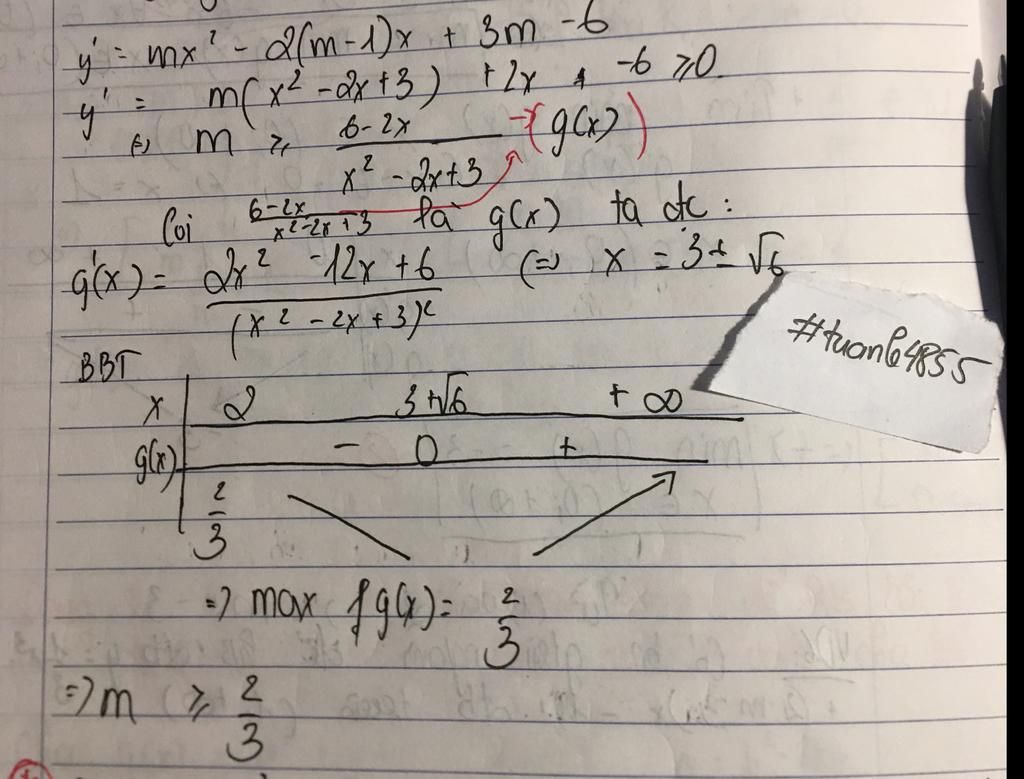 y' = mx² - 2(m-1)x + 3m - 6
y' = m(x² - 2x + 3) + 2x - 6 ≥ 0.
⇔ m ≥ (6-2x)/(x² - 2x + 3) → (g(x))
Coi (6-2x)/(x²-2x+3) là g(x) ta đc :
g'(x) = (2x² - 12x + 6)/(x² - 2x + 3)² ⇔ x = 3 ± √6
#tuanle4855
BBT
x 2 3+√6 +∞
g(x) - 0 +
2/3
⇒ max g(x) = 2/3
⇒ m ≥ 2/3